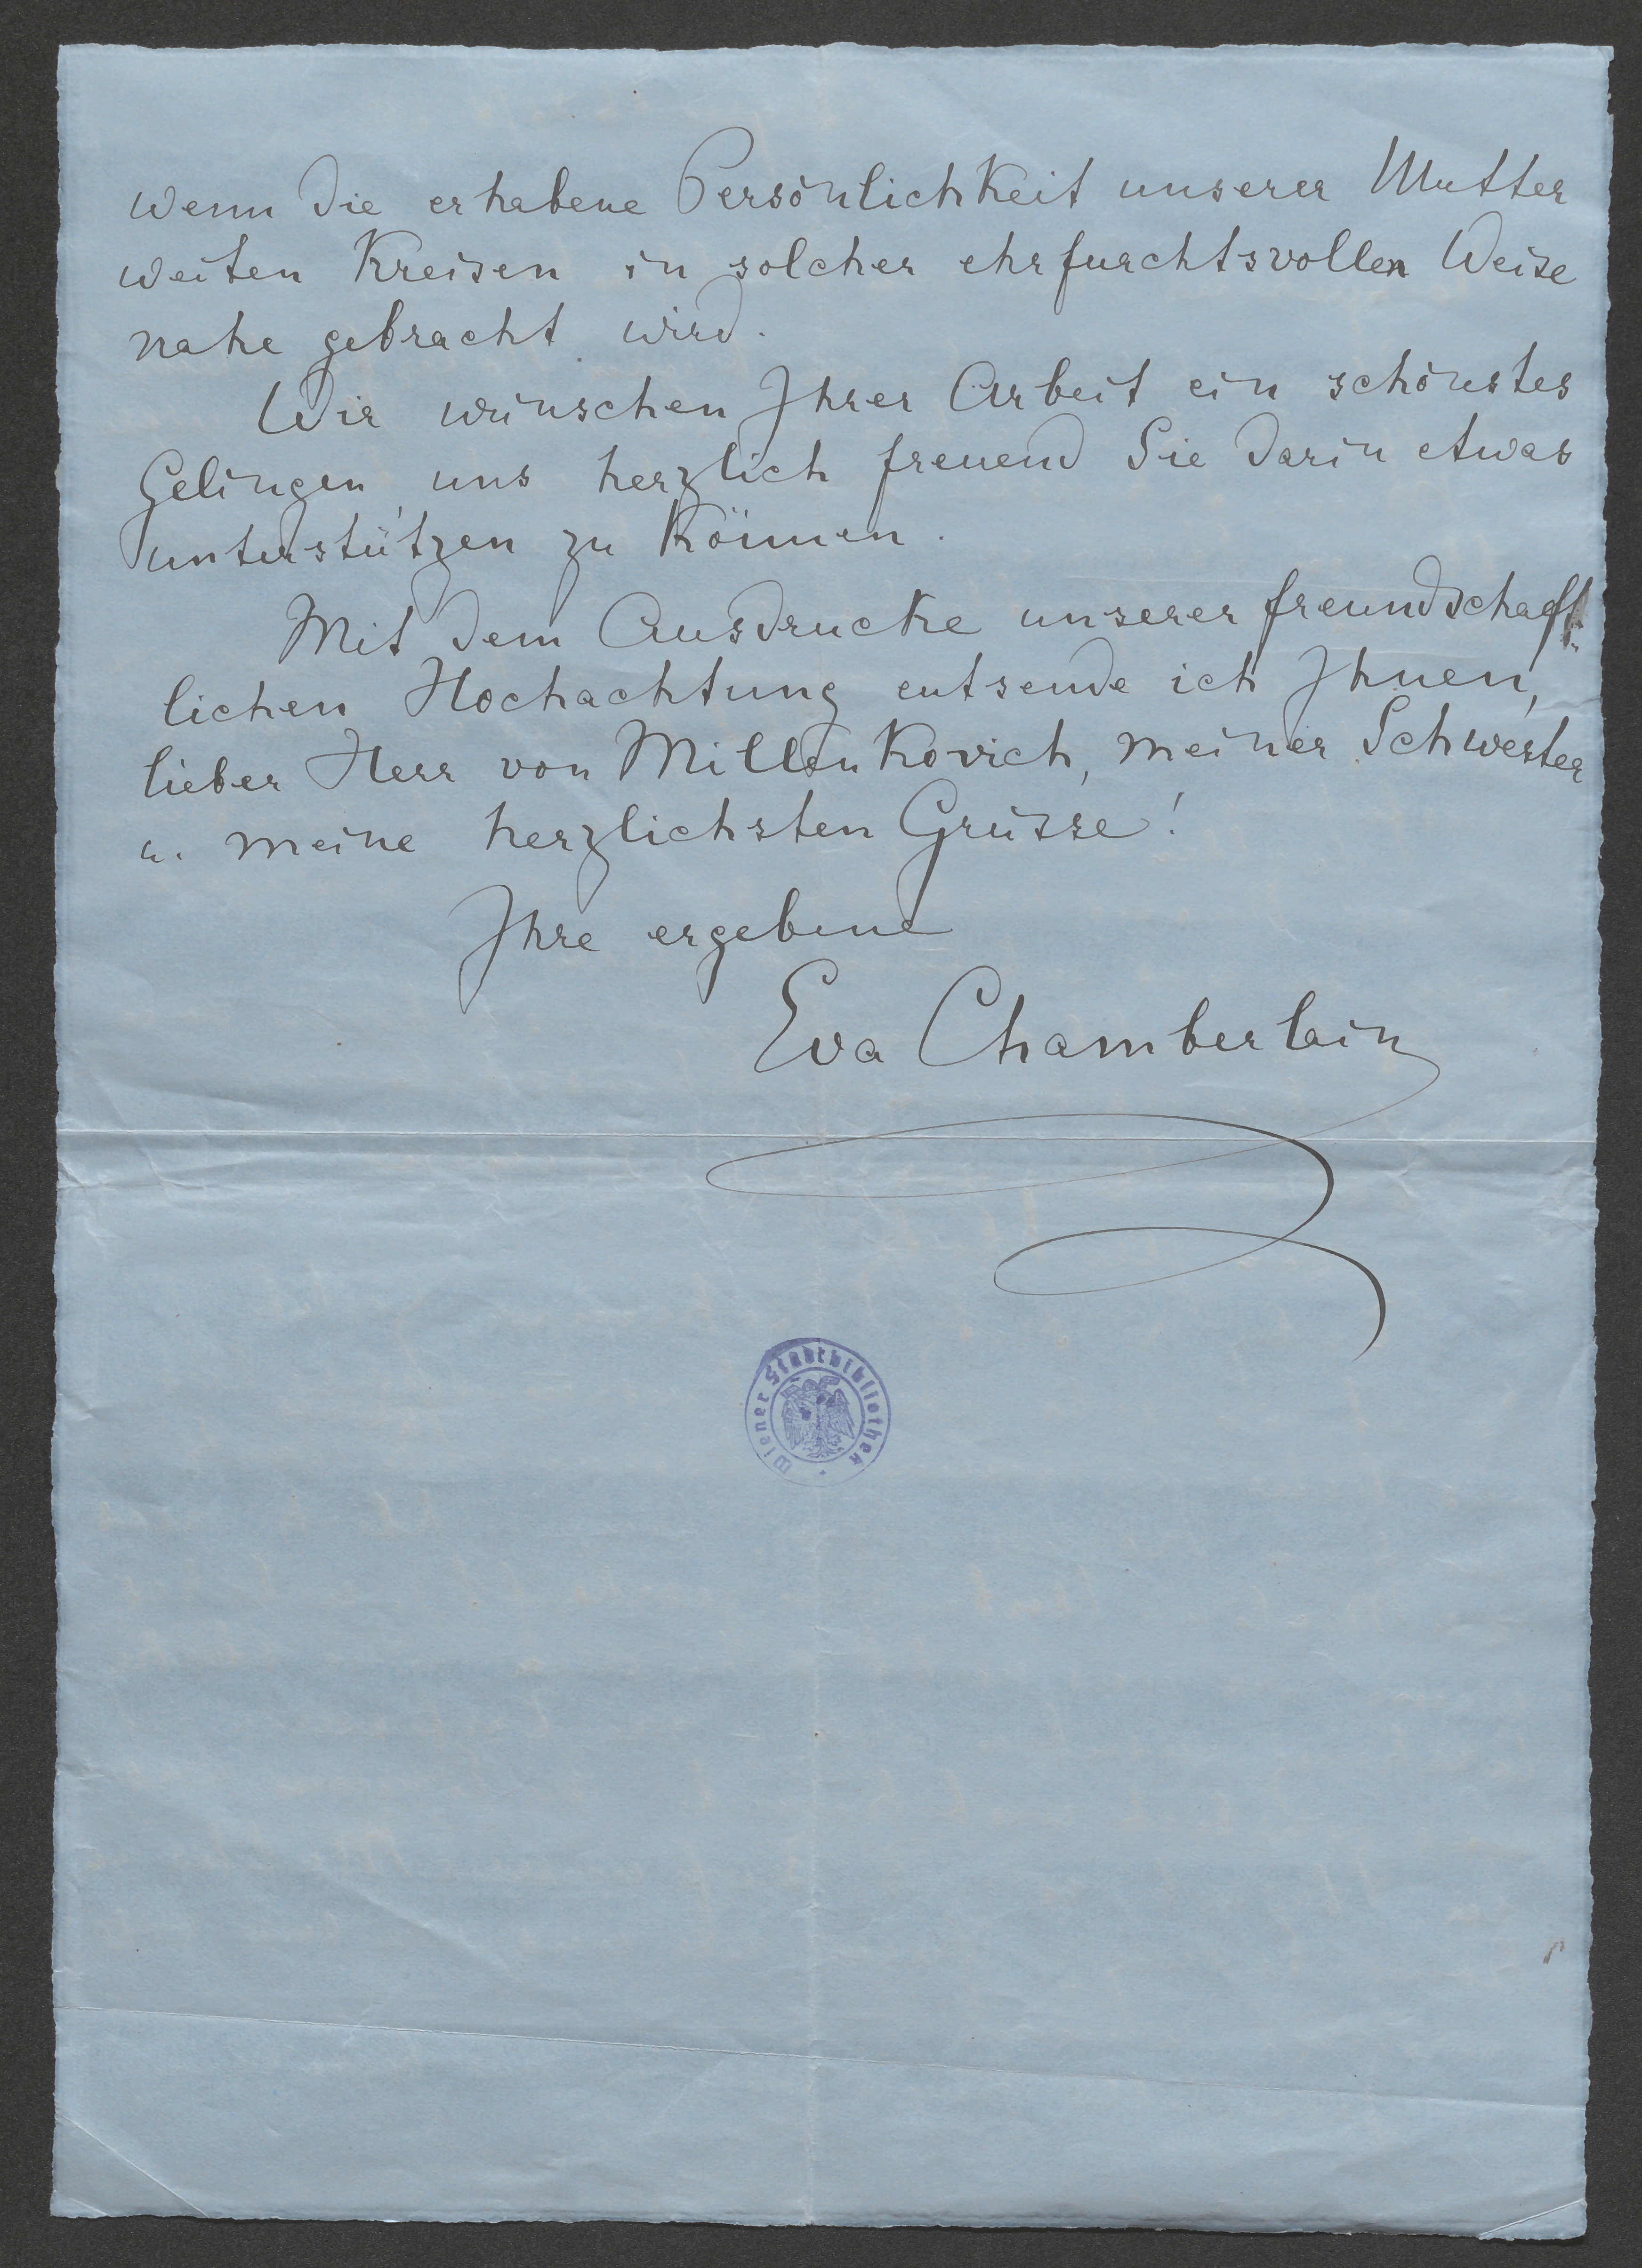 wenn die erhabene Persönlichkeit unserer Mutter
weiten Kreisen in solcher ehrfurchtsvollen Weise
nahe gebracht wird.
Wir wünschen Ihrer Arbeit ein schönstes
Gelingen, uns herzlich freuend Sie darin etwas
unterstützen zu können.
Mit dem Ausdrucke unserer freundschaft-
lichen Hochachtung entsende ich Ihnen,
lieber Herr von Millenkovich, meiner Schwester
u. meine herzlichsten Grüsse!
Ihre ergebene
Eva Chamberlain
Wiener Stadtbibliothek